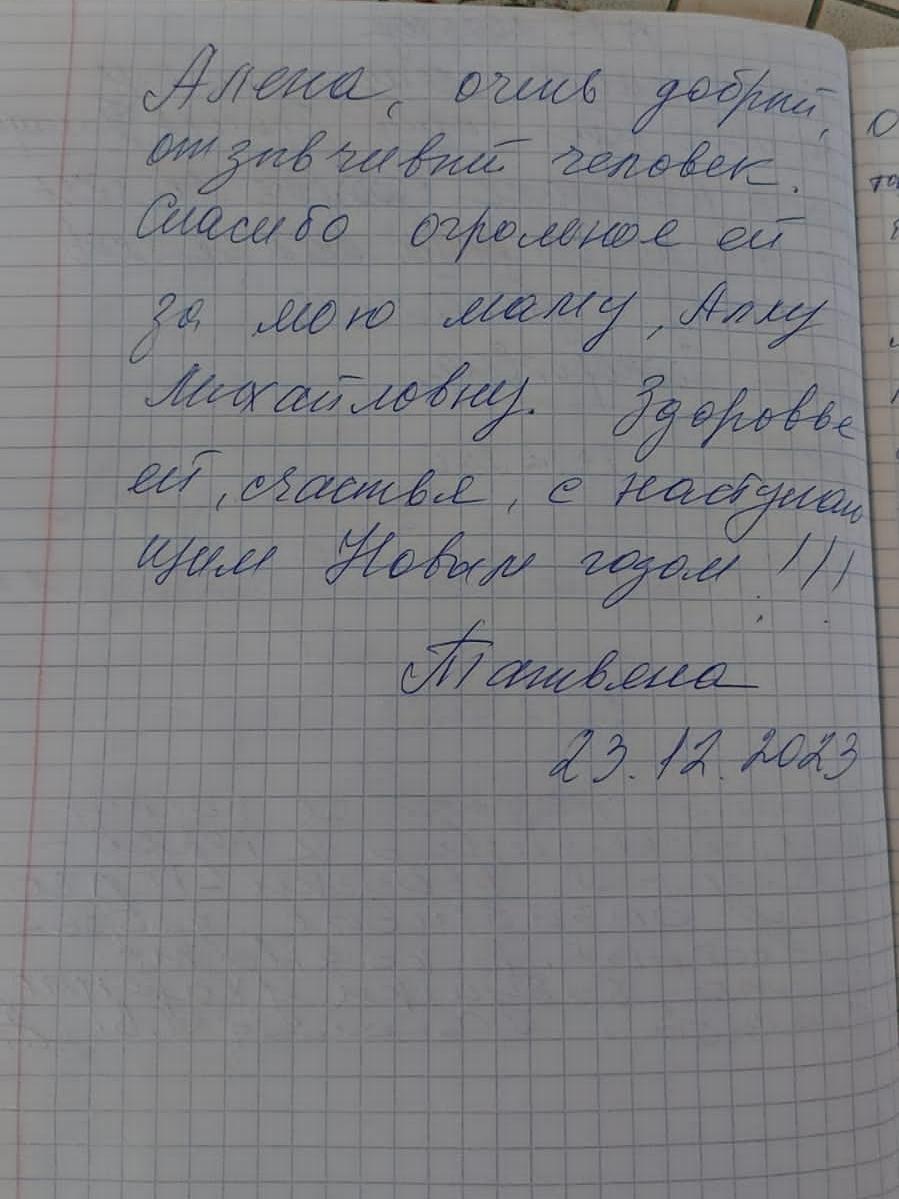 Алена, очень добрый,
отзывчивый человек.
Спасибо огромное ей
за мою маму, Аллу
Михайловну. Здоровье
ей, счастья, с наступаю
щим Новым годом!!!
Татьяна
23.12.2023